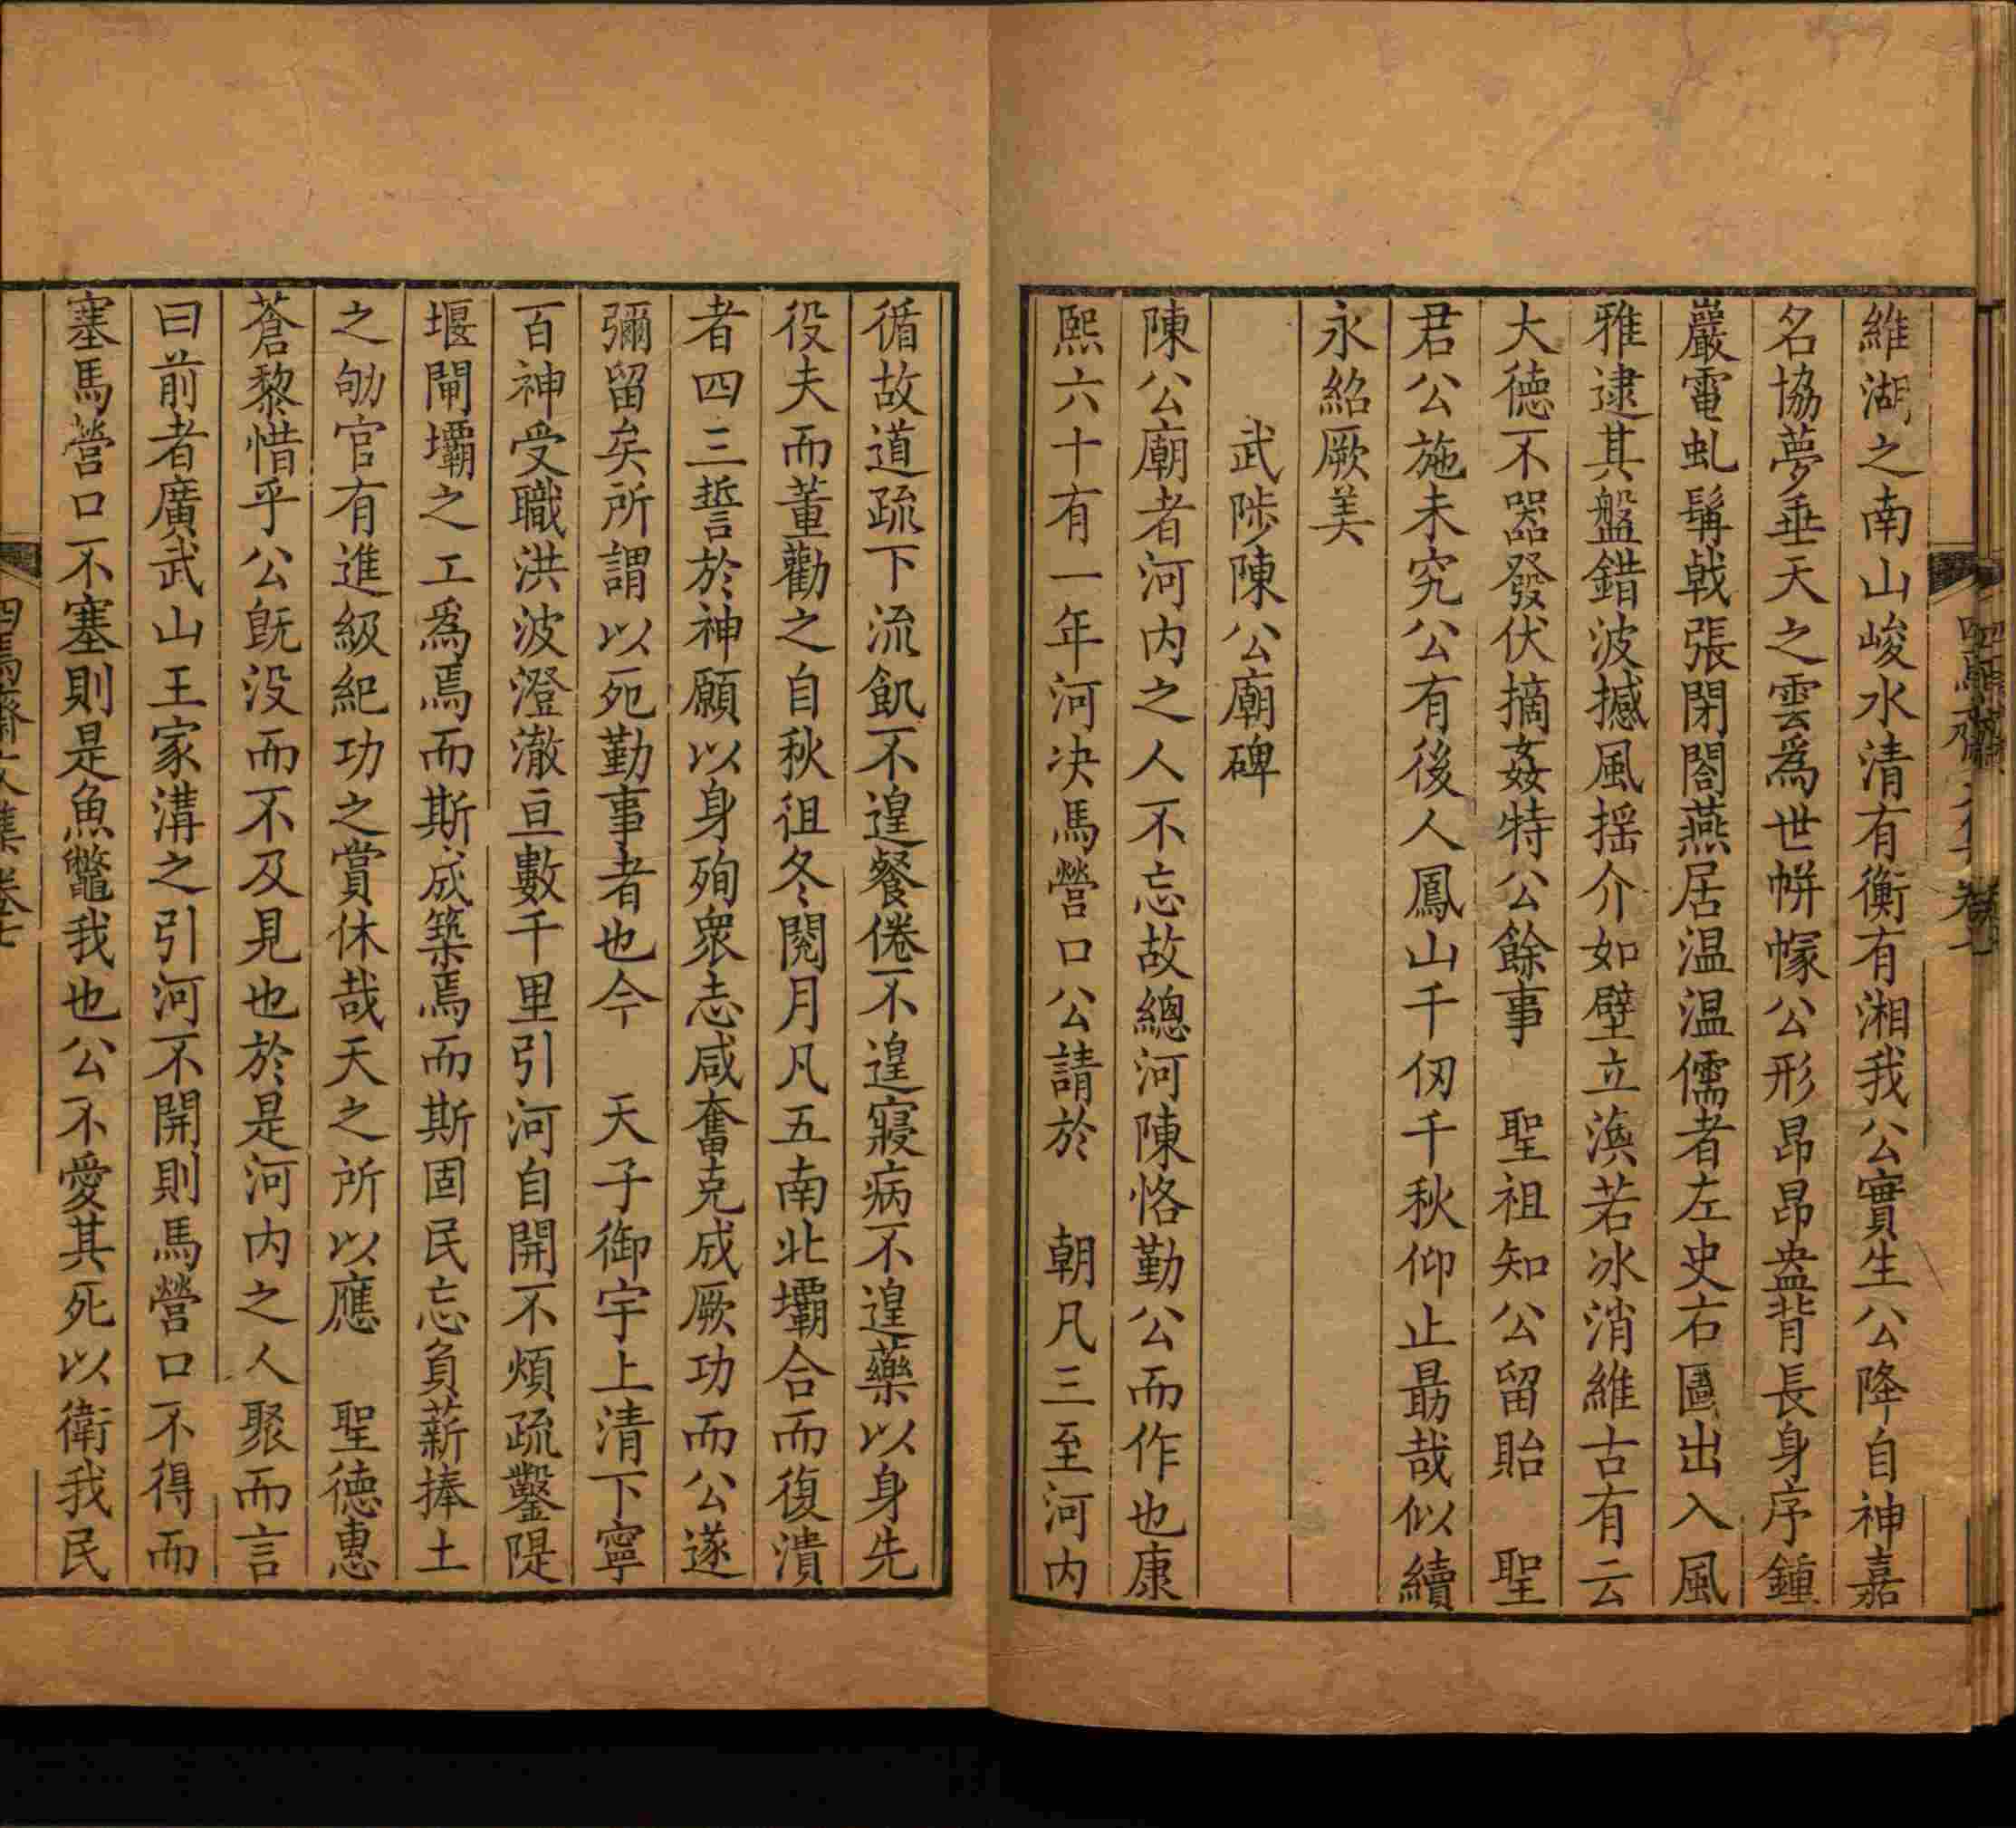 維湖之南山峻水清有衡有湘我公實生公降自神嘉
名協夢垂天之雲爲世帡幪公形昂昂盎背長身序鍾
巖電虬髯戟張閉閤燕居温温儒者左史右圖出入風
雅逮其盤錯波撼風揺介如壁立渙若冰消維古有云
大德不器發伏摘姦特公餘事　聖祖知公留貽　聖
君公施未究公有後人鳳山千仞千秋仰止最哉似續
永紹厥美
武陟陳公廟碑
陳公廟者河内之人不忘故總河陳恪勤公而作也康
熙六十有一年河决馬營口公請於　朝凡三至河内
循故道疏下流飢不遑餐倦不遑寢病不遑藥以身先
役夫而董勸之自秋徂冬閱月凡五南北壩合而復潰
者四三誓於神願以身殉衆志咸奮克成厥功而公遂
彌留矣所謂以死勤事者也今　天子御宇上清下寧
百神受職洪波澄澈亘數千里引河自開不煩疏鑿隄
堰閘壩之工爲焉而斯成築焉而斯固民忘負薪捧土
之劬官有進級紀功之賞休哉天之所以應　聖德惠
蒼黎惜乎公旣没而不及見也於是河内之人聚而言
曰前者廣武山王家溝之引河不開則馬營口不得而
塞馬營口不塞則是魚鼈我也公不愛其死以衛我民
四焉齋文集卷七